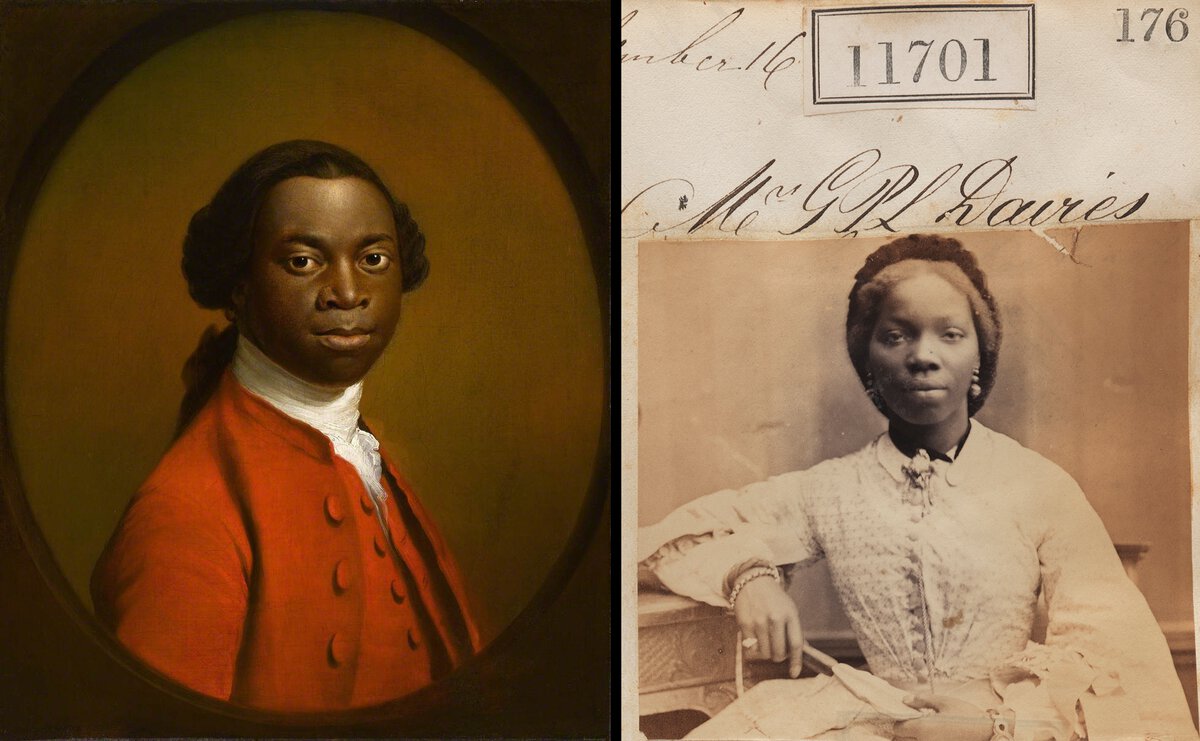 mber 16
11701
176
Mrs G P L Davies